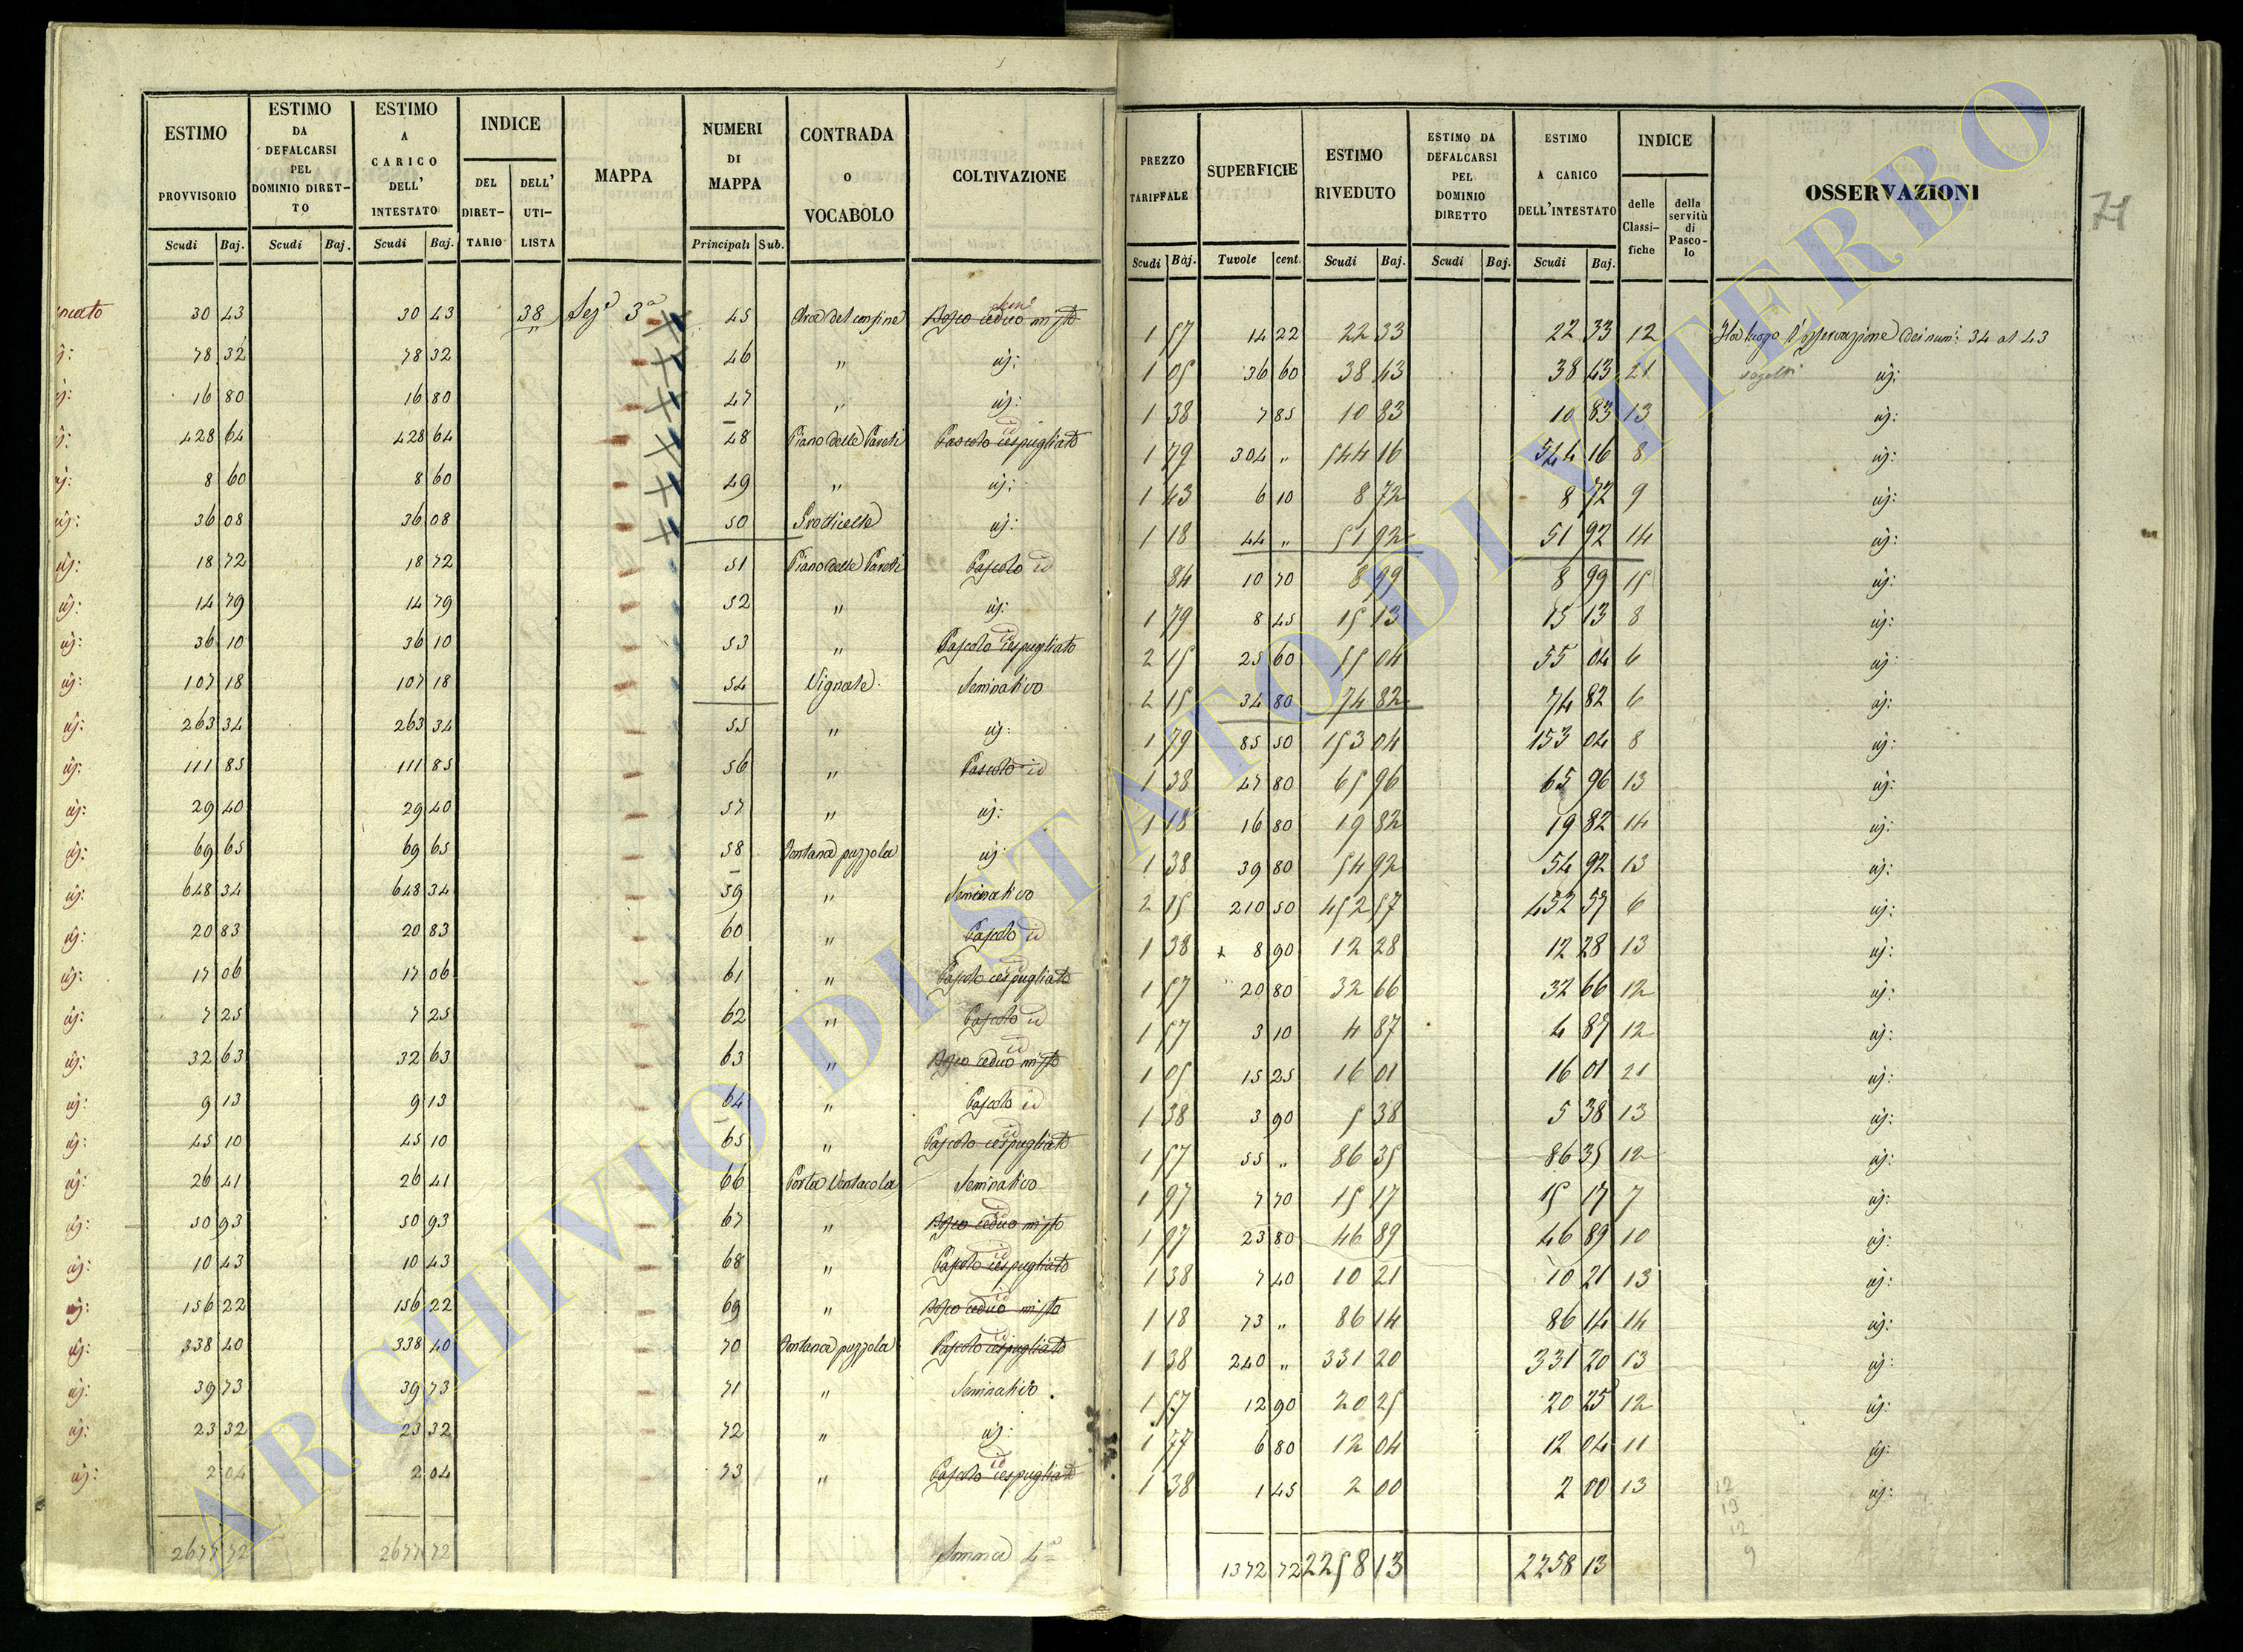 ESTIMO PROVVISORIO | ESTIMO DA DEFALCARSI PEL DOMINIO DIRET-TO | ESTIMO A CARICO DELL' INTESTATO | INDICE | MAPPA | NUMERI DI MAPPA | CONTRADA O VOCABOLO | COLTIVAZIONE | PREZZO TARIFFALE | SUPERFICIE | ESTIMO RIVEDUTO | ESTIMO DA DEFALCARSI PEL DOMINIO DIRETTO | ESTIMO A CARICO DELL'INTESTATO | INDICE | OSSERVAZIONI | 71
DEL DIRET-TARIO | DELL' UTI-LISTA | delle Classi-fiche | della servitù di Pasco-lo
Scudi | Baj. | Scudi | Baj. | Scudi | Baj. | Principali | Sub. | Scudi | Baj. | Tavole | cent. | Scudi | Baj. | Scudi | Baj. | Scudi | Baj.
30 43 | 30 43 | 38 | Sez.e 3a | 45 | del confine | Bosco ceduo misto | 1 57 | 14 22 | 22 33 | 22 33 | 12 | Ha luogo l'osservazione dei num: 34 al 43
78 32 | 78 32 | 46 | " | id: | 1 05 | 36 60 | 38 43 | 38 43 | 21 | id:
16 80 | 16 80 | 47 | " | id: | 1 38 | 7 85 | 10 83 | 10 83 | 13 | id:
428 64 | 428 64 | 48 | Piano delle Pareti | Pascolo cespugliato | 1 79 | 304 " | 544 16 | 544 16 | 8 | id:
8 60 | 8 60 | 49 | " | id: | 1 43 | 6 10 | 8 72 | 8 72 | 9 | id:
36 08 | 36 08 | 50 | Grotticelle | id: | 1 18 | 44 " | 51 92 | 51 92 | 14 | id:
18 72 | 18 72 | 51 | Piano delle Pareti | Pascolo id | 84 | 10 70 | 8 99 | 8 99 | 15 | id:
14 79 | 14 79 | 52 | " | id: | 1 79 | 8 45 | 15 13 | 15 13 | 8 | id:
36 10 | 36 10 | 53 | " | Pascolo cespugliato | 2 15 | 25 60 | 55 04 | 55 04 | 6 | id:
107 18 | 107 18 | 54 | Vignale | Seminativo | 2 15 | 34 80 | 74 82 | 74 82 | 6 | id:
263 34 | 263 34 | 55 | " | id: | 1 79 | 85 50 | 153 04 | 153 04 | 8 | id:
111 85 | 111 85 | 56 | " | Pascolo id | 1 38 | 47 80 | 65 96 | 65 96 | 13 | id:
29 40 | 29 40 | 57 | " | id: | 1 18 | 16 80 | 19 82 | 19 82 | 14 | id:
69 65 | 69 65 | 58 | Fontana puzzola | id | 1 38 | 39 80 | 54 92 | 54 92 | 13 | id:
648 34 | 648 34 | 59 | " | Seminativo | 2 15 | 210 50 | 452 57 | 452 57 | 6 | id:
20 83 | 20 83 | 60 | " | Pascolo id | 1 38 | 8 90 | 12 28 | 12 28 | 13 | id:
17 06 | 17 06 | 61 | " | Pascolo cespugliato | 1 57 | 20 80 | 32 66 | 32 66 | 12 | id:
7 25 | 7 25 | 62 | " | Pascolo id | 1 57 | 3 10 | 4 87 | 4 87 | 12 | id:
32 63 | 32 63 | 63 | " | Bosco ceduo misto | 1 05 | 15 25 | 16 01 | 16 01 | 21 | id:
9 13 | 9 13 | 64 | " | Pascolo id | 1 38 | 3 90 | 5 38 | 5 38 | 13 | id:
45 10 | 45 10 | 65 | " | Pascolo cespugliato | 1 57 | 55 " | 86 35 | 86 35 | 12 | id:
26 41 | 26 41 | 66 | Porta | Seminativo | 1 97 | 7 70 | 15 17 | 15 17 | 7 | id:
50 93 | 50 93 | 67 | " | Bosco ceduo misto | 1 97 | 23 80 | 46 89 | 46 89 | 10 | id:
10 43 | 10 43 | 68 | " | Pascolo cespugliato | 1 38 | 7 40 | 10 21 | 10 21 | 13 | id:
156 22 | 156 22 | 69 | " | Bosco ceduo misto | 1 18 | 73 " | 86 14 | 86 14 | 14 | id:
338 40 | 338 40 | 70 | Fontana puzzola | Pascolo cespugliato | 1 38 | 240 " | 331 20 | 331 20 | 13 | id:
39 73 | 39 73 | 71 | " | Seminativo | 1 57 | 12 90 | 20 25 | 20 25 | 12 | id:
23 32 | 23 32 | 72 | " | id: | 1 77 | 6 80 | 12 04 | 12 04 | 11 | id:
2 04 | 2 04 | 73 | " | Pascolo cespugliato | 1 38 | 1 45 | 2 00 | 2 00 | 13 | id:
2677 72 | 2677 72 | Somma 4a | 1372 72 | 2258 13 | 2258 13
ARCHIVIO DI STATO DI VITERBO